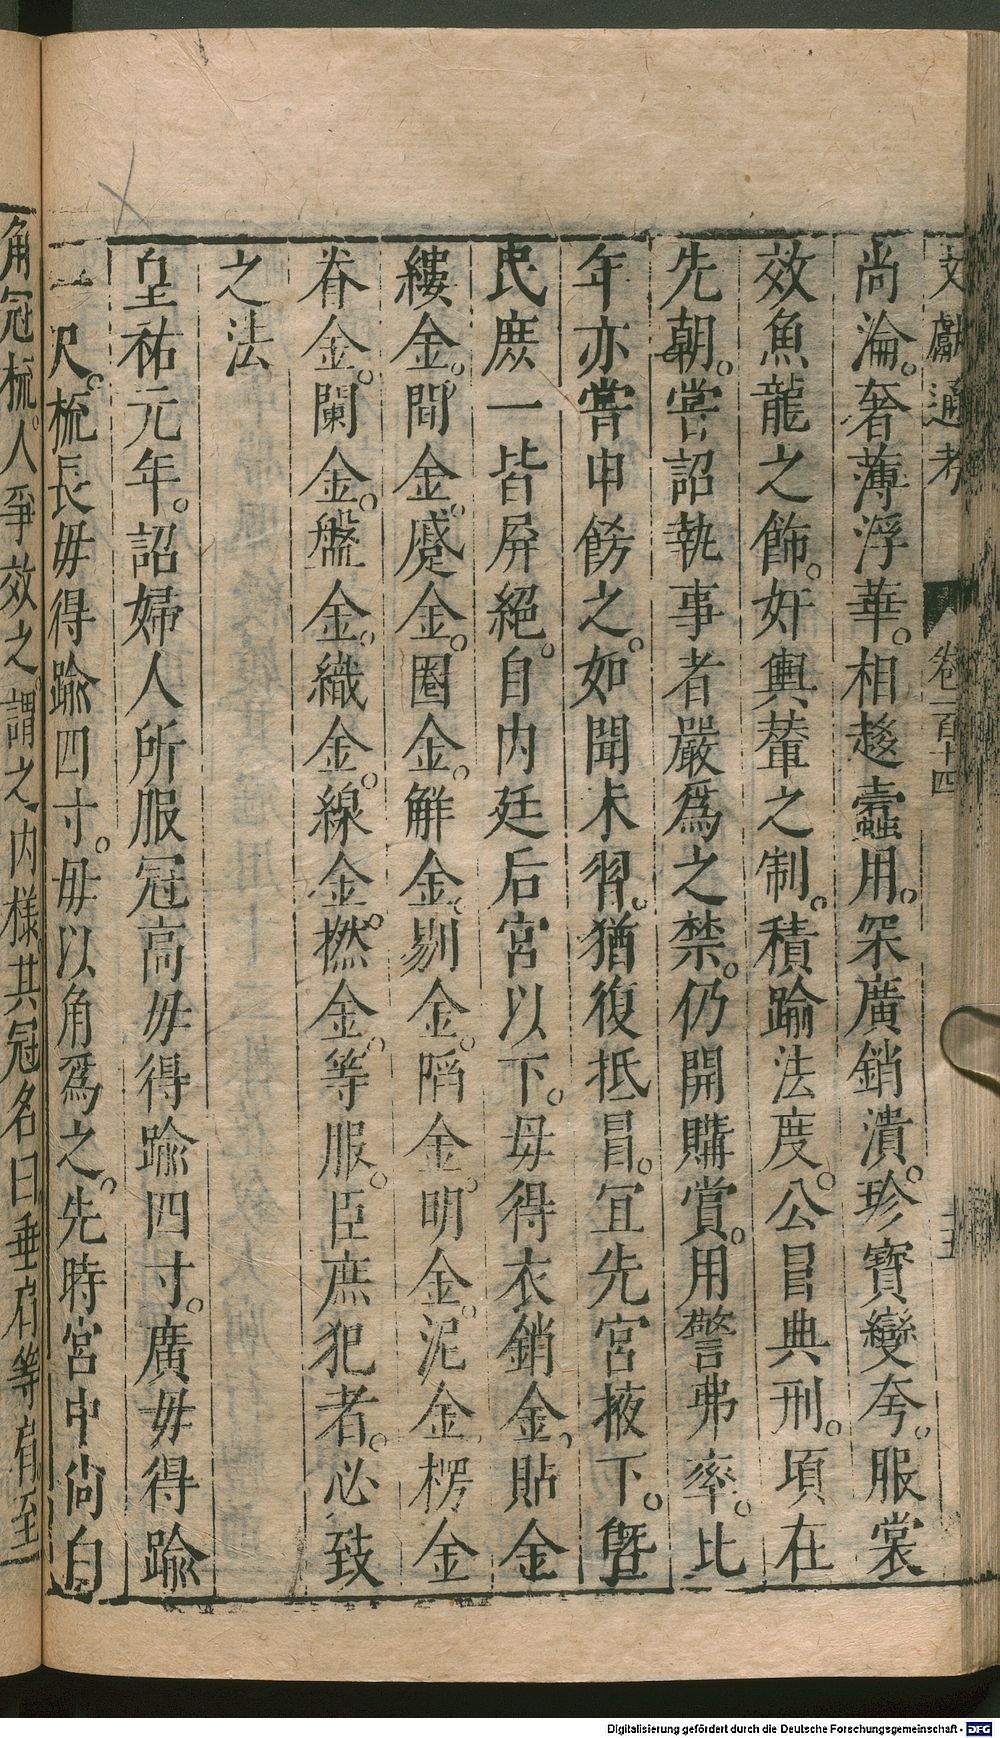 文獻通考 卷一百十四 十五
尚淪。奢薄浮華。相趍蠹用。罙廣銷潰。珍寶變夸。服裳
效魚龍之飾。奸輿輦之制。積踰法度。公冒典刑。項在
先朝。嘗詔執事者嚴爲之禁。仍開購賞。用警弗率。比
年亦嘗申餝之。如聞未習。猶復抵冒。宜先宮掖下。曁
民庶一皆屛絕。自内廷后宮以下。毋得衣銷金。貼金
縷金。間金。蹙金。圈金。解金。剔金。䧟金。明金。泥金。楞金
眷金。闌金。盤金。織金。線金。撚金。等服。臣庶犯者。必致
之法
皇祐元年。詔婦人所服冠高毋得踰四寸。廣毋得踰
一尺。梳長毋得踰四寸。毋以角爲之。先時宮中尚白
角冠梳。人爭效之。謂之内樣。其冠名曰垂肩等肩至
Digitalisierung gefördert durch die Deutsche Forschungsgemeinschaft - DFG